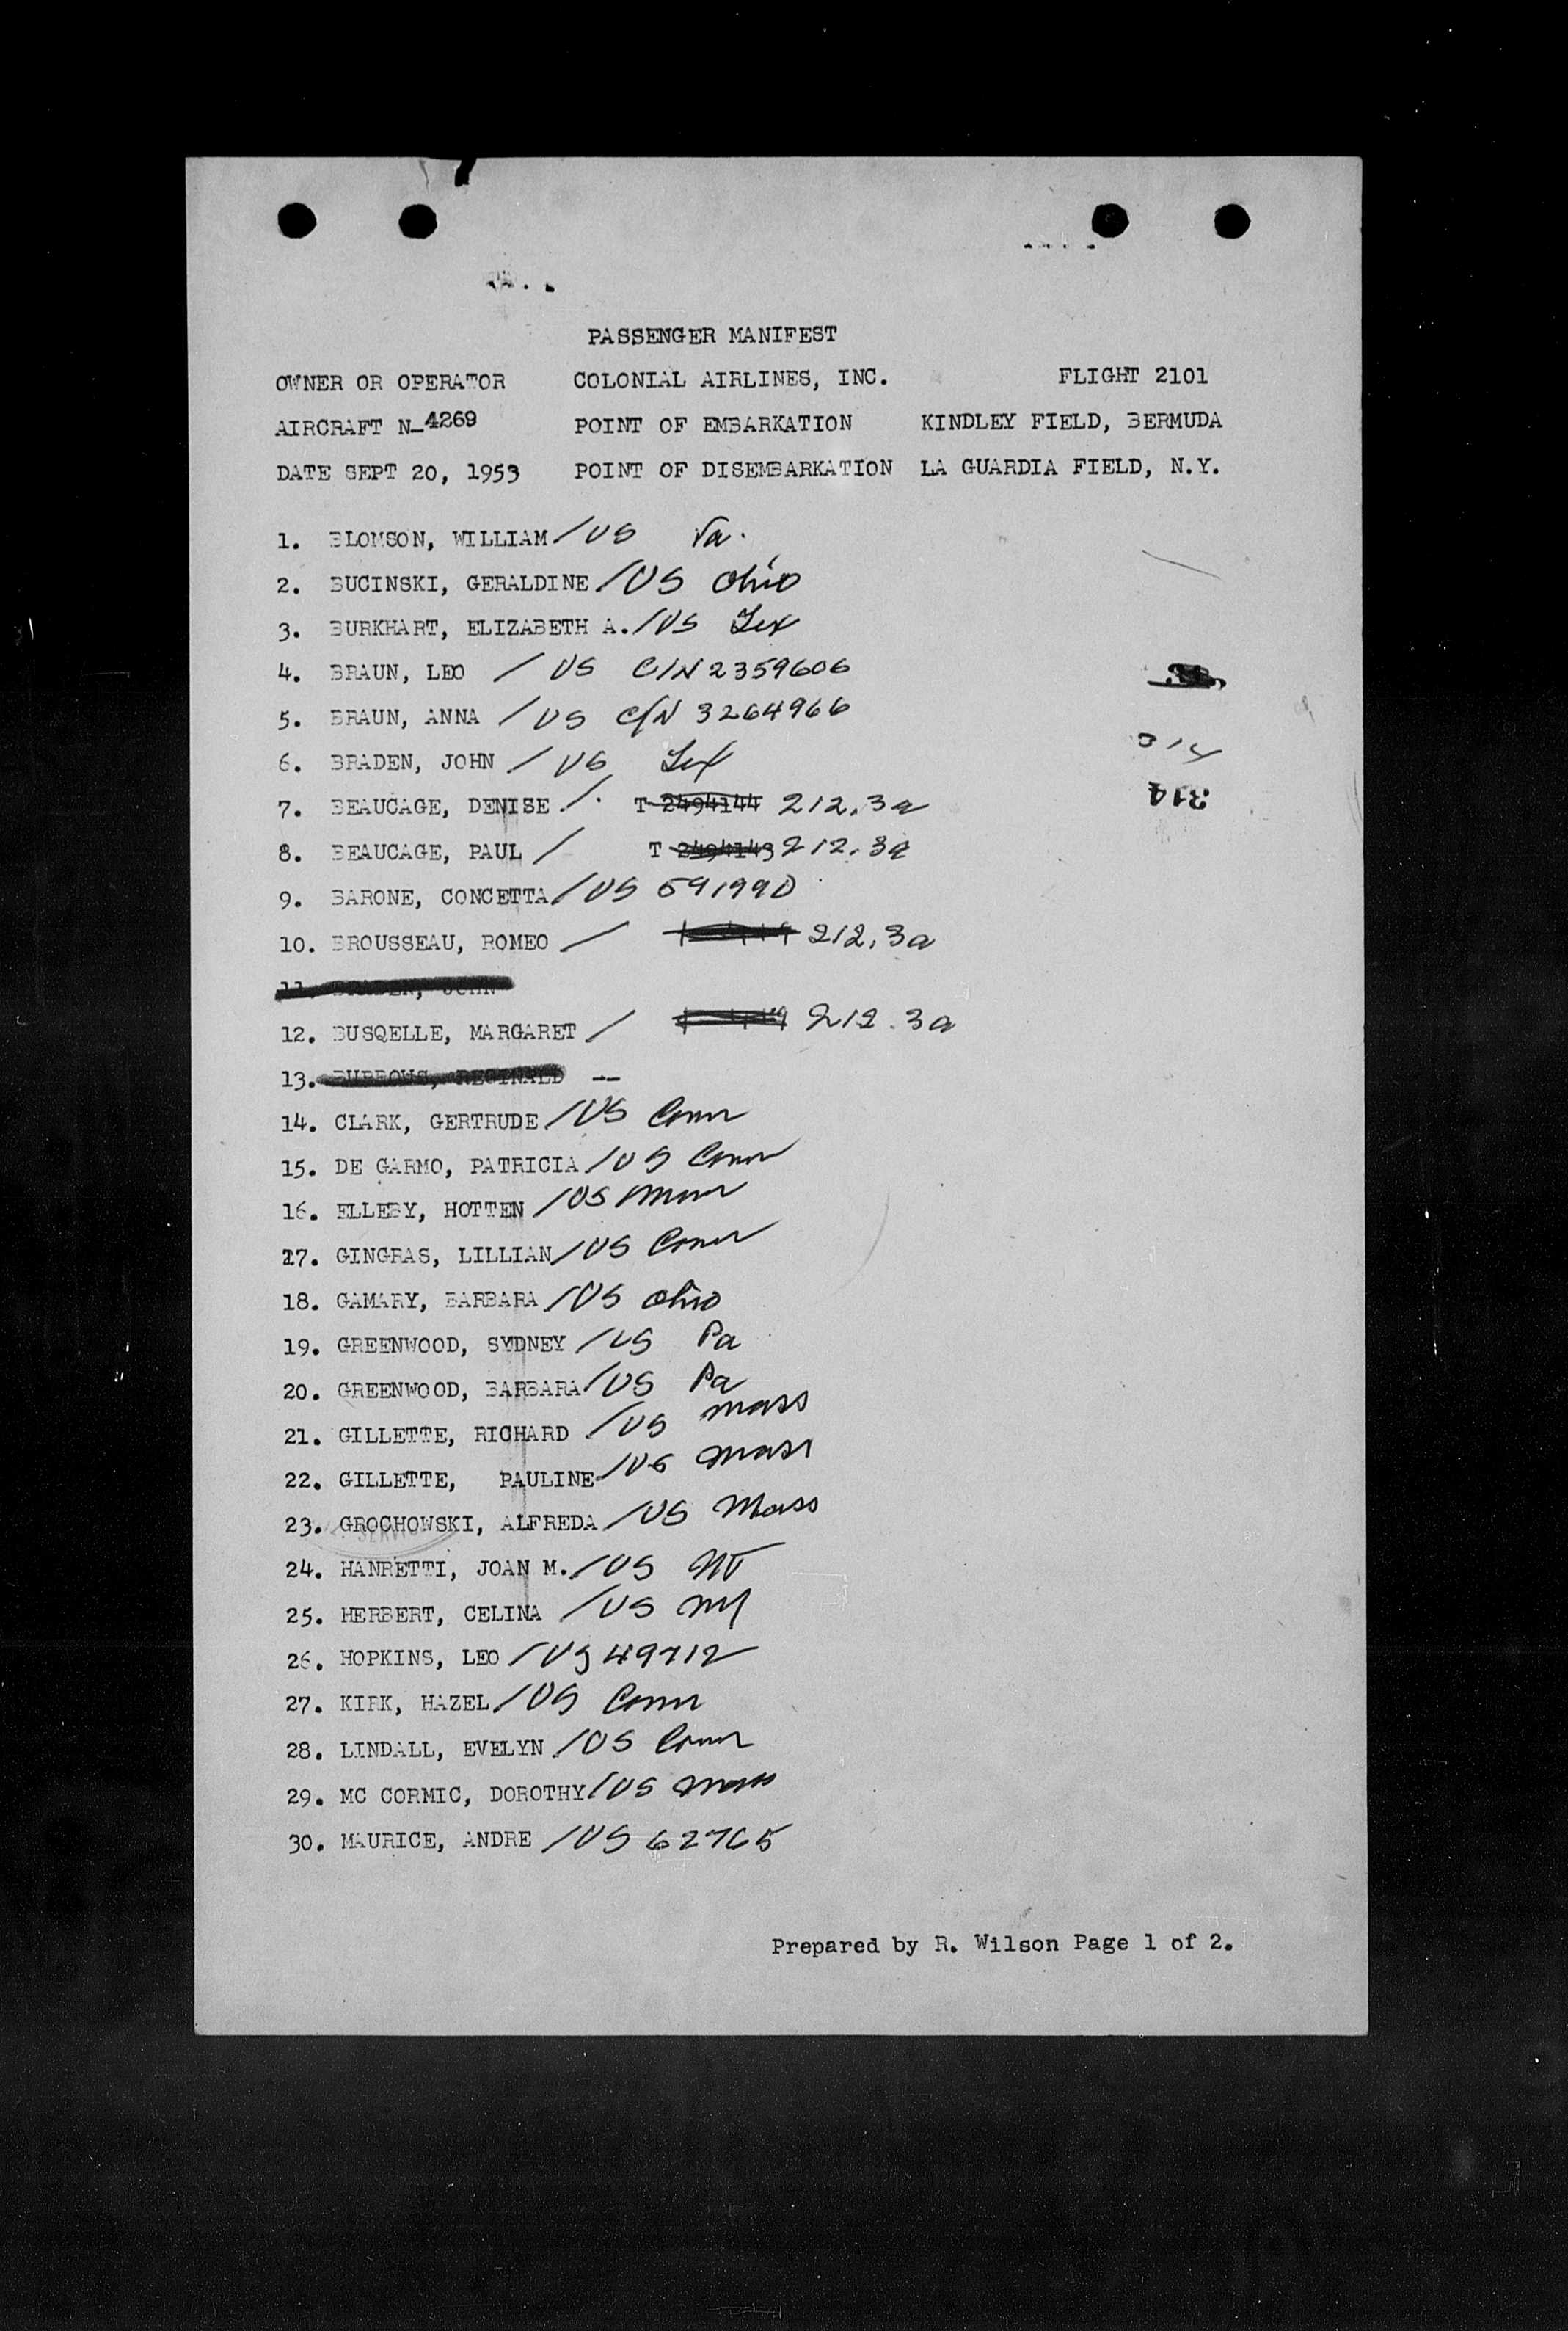 PASSENGER MANIFEST
OWNER OR OPERATOR COLONIAL AIRLINES, INC. FLIGHT 2101
AIRCRAFT N-4269 POINT OF EMBARKATION KINDLEY FIELD, BERMUDA
DATE SEPT 20, 1953 POINT OF DISEMBARKATION LA GUARDIA FIELD, N.Y.
1. BLOMSON, WILLIAM / US Va.
2. BUCINSKI, GERALDINE / US Ohio
3. BURKHART, ELIZABETH A. / US Tex
4. BRAUN, LEO / US C/N 2359606
5. BRAUN, ANNA / US C/N 3264966
6. BRADEN, JOHN / US Tex
314
7. BEAUCAGE, DENISE / T 2494144 212.3a
314
8. BEAUCAGE, PAUL / T 2494143 212.3a
9. BARONE, CONCETTA / US 591990
10. BROUSSEAU, ROMEO / 212.3a
11. BRADEN, JOHN
12. BUSQELLE, MARGARET / 212.3a
13. BURROWS, REGINALD --
14. CLARK, GERTRUDE / US Conn
15. DE GARMO, PATRICIA / US Conn
16. ELLEBY, HOTTEN / US Minn
17. GINGRAS, LILLIAN / US Conn
18. GAMARY, BARBARA / US Ohio
19. GREENWOOD, SYDNEY / US Pa
20. GREENWOOD, BARBARA / US Pa
21. GILLETTE, RICHARD / US Mass
22. GILLETTE, PAULINE / US Mass
23. GROCHOWSKI, ALFREDA / US Mass
24. HANRETTI, JOAN M. / US NJ
25. HERBERT, CELINA / US NY
26. HOPKINS, LEO / US 49712
27. KIRK, HAZEL / US Conn
28. LINDALL, EVELYN / US Conn
29. MC CORMIC, DOROTHY / US Mass
30. MAURICE, ANDRE / US 62765
Prepared by R. Wilson Page 1 of 2.